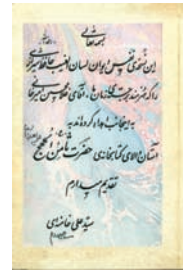 بسمه تعالی
این نسخه‌ی نفیس دیوان لسان الغیب حافظ شیرازی
را که هنرمند زمان ما، آقای غلامحسین امیرخانی
به اینجانب اهداء کرده‌اند به
آستان والای کتابخانه‌ی حضرت ثامن الحجج
تقدیم میدارم
سید علی خامنه‌ای